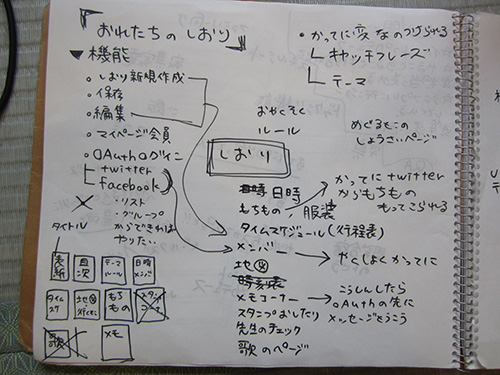 おれたちの しおり
▼機能
○しおり新規作成
○保存
○編集
○マイページ会員
○OAuthログイン
twitter
facebook
・リスト
・グループ
からできれば
やりたい
タイトル
表紙
目次
テーマ
ルール
日時
メンバ
タイムスケ
地図
もちもの
スタンプコーナー
歌
メモ
・かってに変なのつけられる
キャッチフレーズ
テーマ
おやくそく
ルール
めくるとこの
しょうさいページ
しおり
日時
もちもの／服装
タイムスケジュール(行程表)
メンバー
地図
時刻表
メモコーナー
スタンプおしたり
先生のチェック
歌のページ
かってにtwitter
からもちもの
もってこられる
やくしょくかってに
こうしんしたら
OAuthの先に
メッセージをうこう